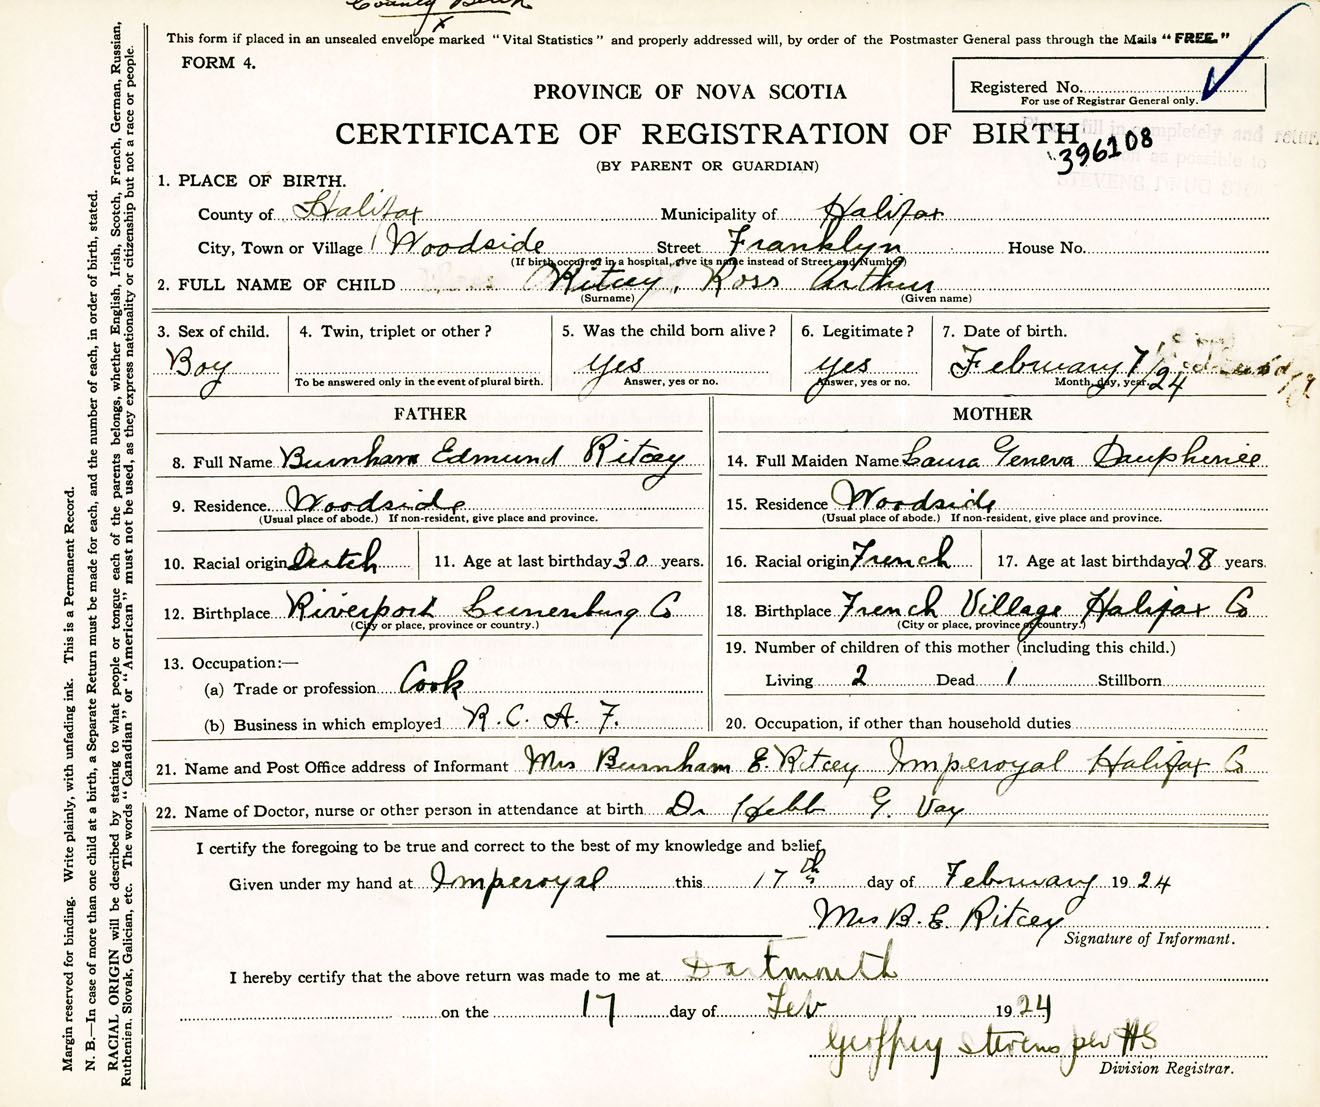 County Birth
This form if placed in an unsealed envelope marked "Vital Statistics" and properly addressed will, by order of the Postmaster General pass through the Mails "FREE."
FORM 4.
Registered No.
For use of Registrar General only.
PROVINCE OF NOVA SCOTIA
CERTIFICATE OF REGISTRATION OF BIRTH
396108
Please fill in completely and return
as possible to
STEVENS DRUG STORE
(BY PARENT OR GUARDIAN)
1. PLACE OF BIRTH.
County of Halifax Municipality of Halifax
City, Town or Village Woodside Street Franklyn House No.
(If birth occurred in a hospital, give its name instead of Street and Number)
2. FULL NAME OF CHILD Ritcey, Ross Arthur
(Surname) (Given name)
3. Sex of child. 4. Twin, triplet or other? 5. Was the child born alive? 6. Legitimate? 7. Date of birth.
Boy yes yes February 7/24
To be answered only in the event of plural birth. Answer, yes or no. Answer, yes or no. Month, day, year.
FATHER MOTHER
8. Full Name Burnham Edmund Ritcey 14. Full Maiden Name Laura Geneva Dauphinee
9. Residence Woodside 15. Residence Woodside
(Usual place of abode.) If non-resident, give place and province. (Usual place of abode.) If non-resident, give place and province.
10. Racial origin Dutch 11. Age at last birthday 30 years. 16. Racial origin French 17. Age at last birthday 28 years.
12. Birthplace Riverport Lunenburg Co 18. Birthplace French Village Halifax Co
(City or place, province or country.) (City or place, province or country.)
13. Occupation:— 19. Number of children of this mother (including this child.)
(a) Trade or profession Cook Living 2 Dead 1 Stillborn
(b) Business in which employed R. C. A. F. 20. Occupation, if other than household duties
21. Name and Post Office address of Informant Mrs Burnham E. Ritcey Imperoyal Halifax Co
22. Name of Doctor, nurse or other person in attendance at birth Dr Hebb G. Vay
I certify the foregoing to be true and correct to the best of my knowledge and belief,
Given under my hand at Imperoyal this 17th day of February 1924
Mrs B. E. Ritcey
Signature of Informant.
I hereby certify that the above return was made to me at Dartmouth
on the 17 day of Feb 1924
Geoffrey Stevens per HS
Division Registrar.
Margin reserved for binding. Write plainly, with unfading ink. This is a Permanent Record.
N. B.—In case of more than one child at a birth, a Separate Return must be made for each, and the number of each, in order of birth, stated.
RACIAL ORIGIN will be described by stating to what people or tongue each of the parents belongs, whether English, Irish, Scotch, French, German, Russian,
Ruthenian, Slovak, Galician, etc. The words "Canadian" or "American" must not be used, as they express nationality or citizenship but not a race or people.